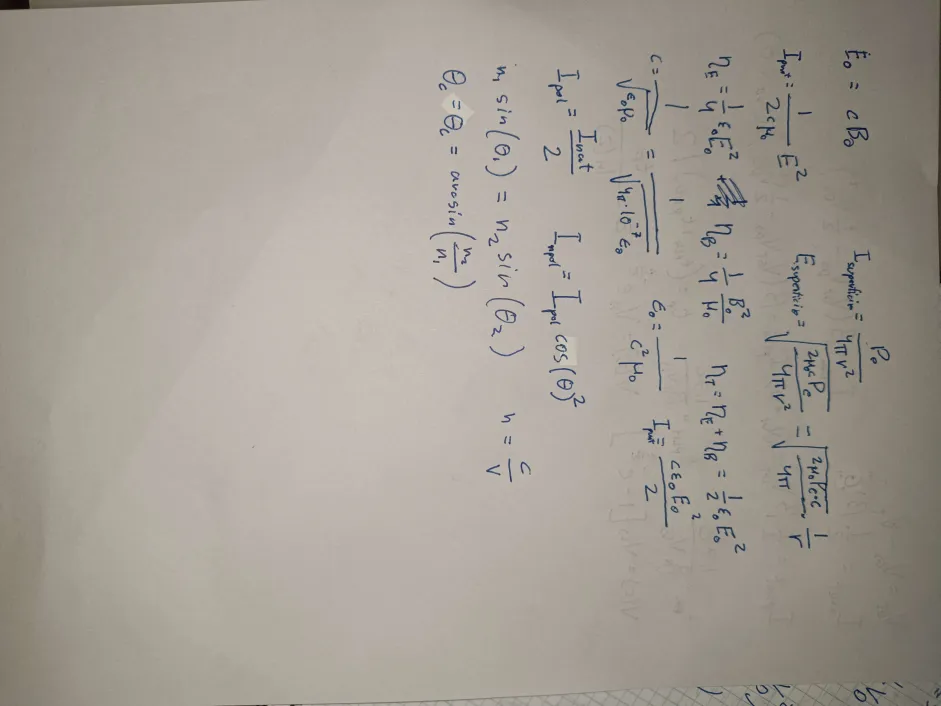 E₀ = cB₀
I_superficin = P₀/(4πr²)
I_punt = 1/(2cμ₀) E²
E_superficin = √(2μ₀cP₀/(4πr²)) = √(2μ₀P₀·c/(4π)) · 1/r
η_E = 1/4 ε₀E₀² η_B = 1/4 B₀²/μ₀ η_T = η_E + η_B = 1/2 ε₀E₀²
c = 1/√(ε₀μ₀) = 1/√(4π·10⁻⁷ ε₀) ε₀ = 1/(c²μ₀) I_punt = cε₀E₀²/2
I_pol = I_nat/2 I_npol = I_pol cos(θ)²
n₁ sin(θ₁) = n₂ sin(θ₂) n = c/v
θ_c = θ_i = arcsin(n₂/n₁)